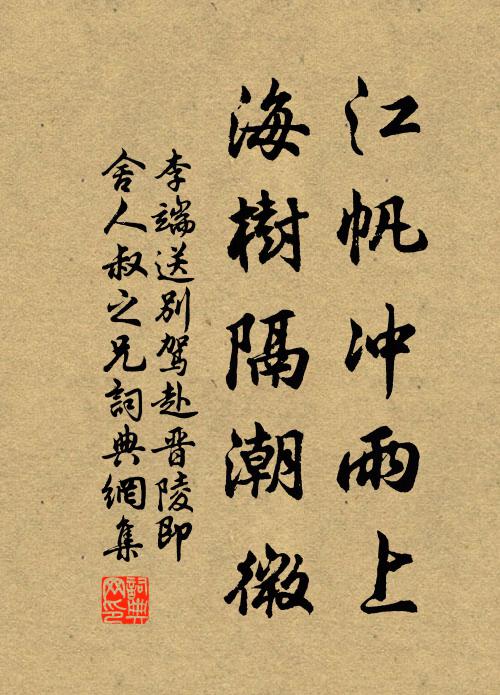 江帆冲雨上
海樹隔潮微
李端送别駕赴晋陵即
舍人叔之兄詞典網集
詞典
网印